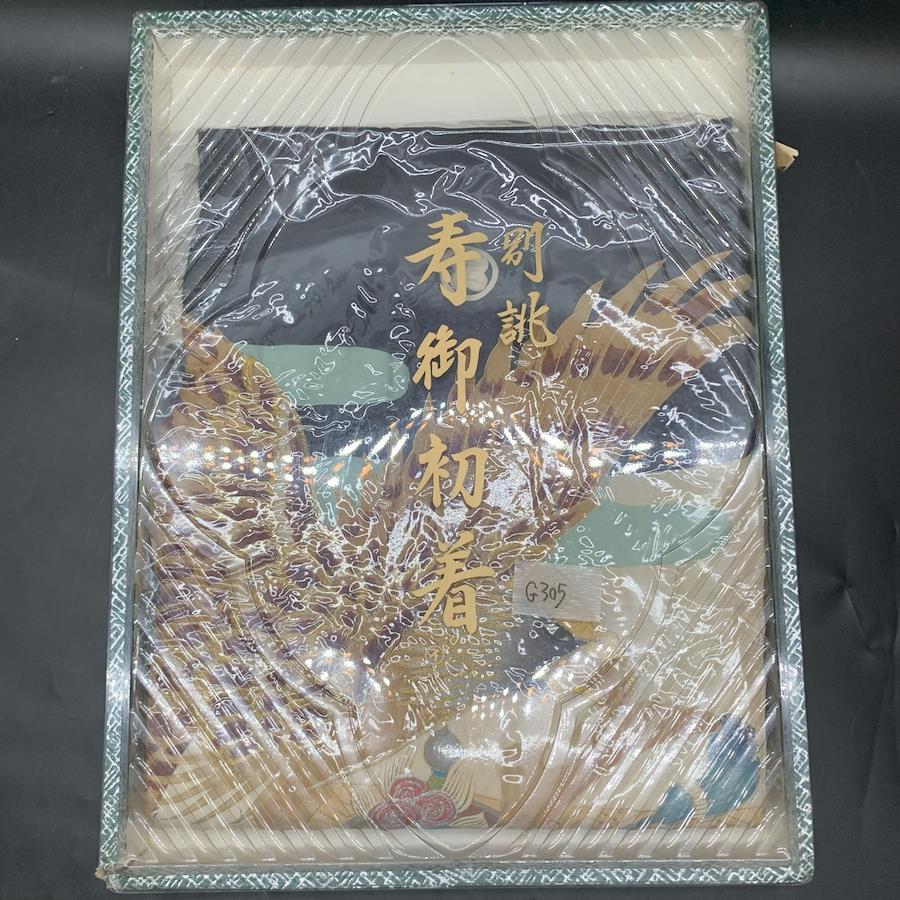 別誂
寿御初着
G305